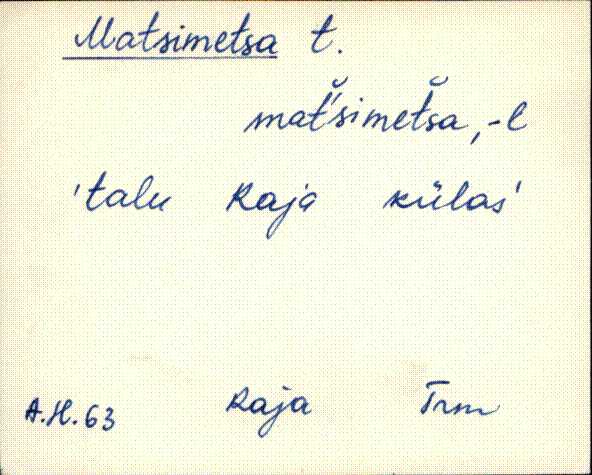 Matsimetsa t.
mat̆'simetša, -l
'talu Raja külas'
A.H. 63 Raja Trm